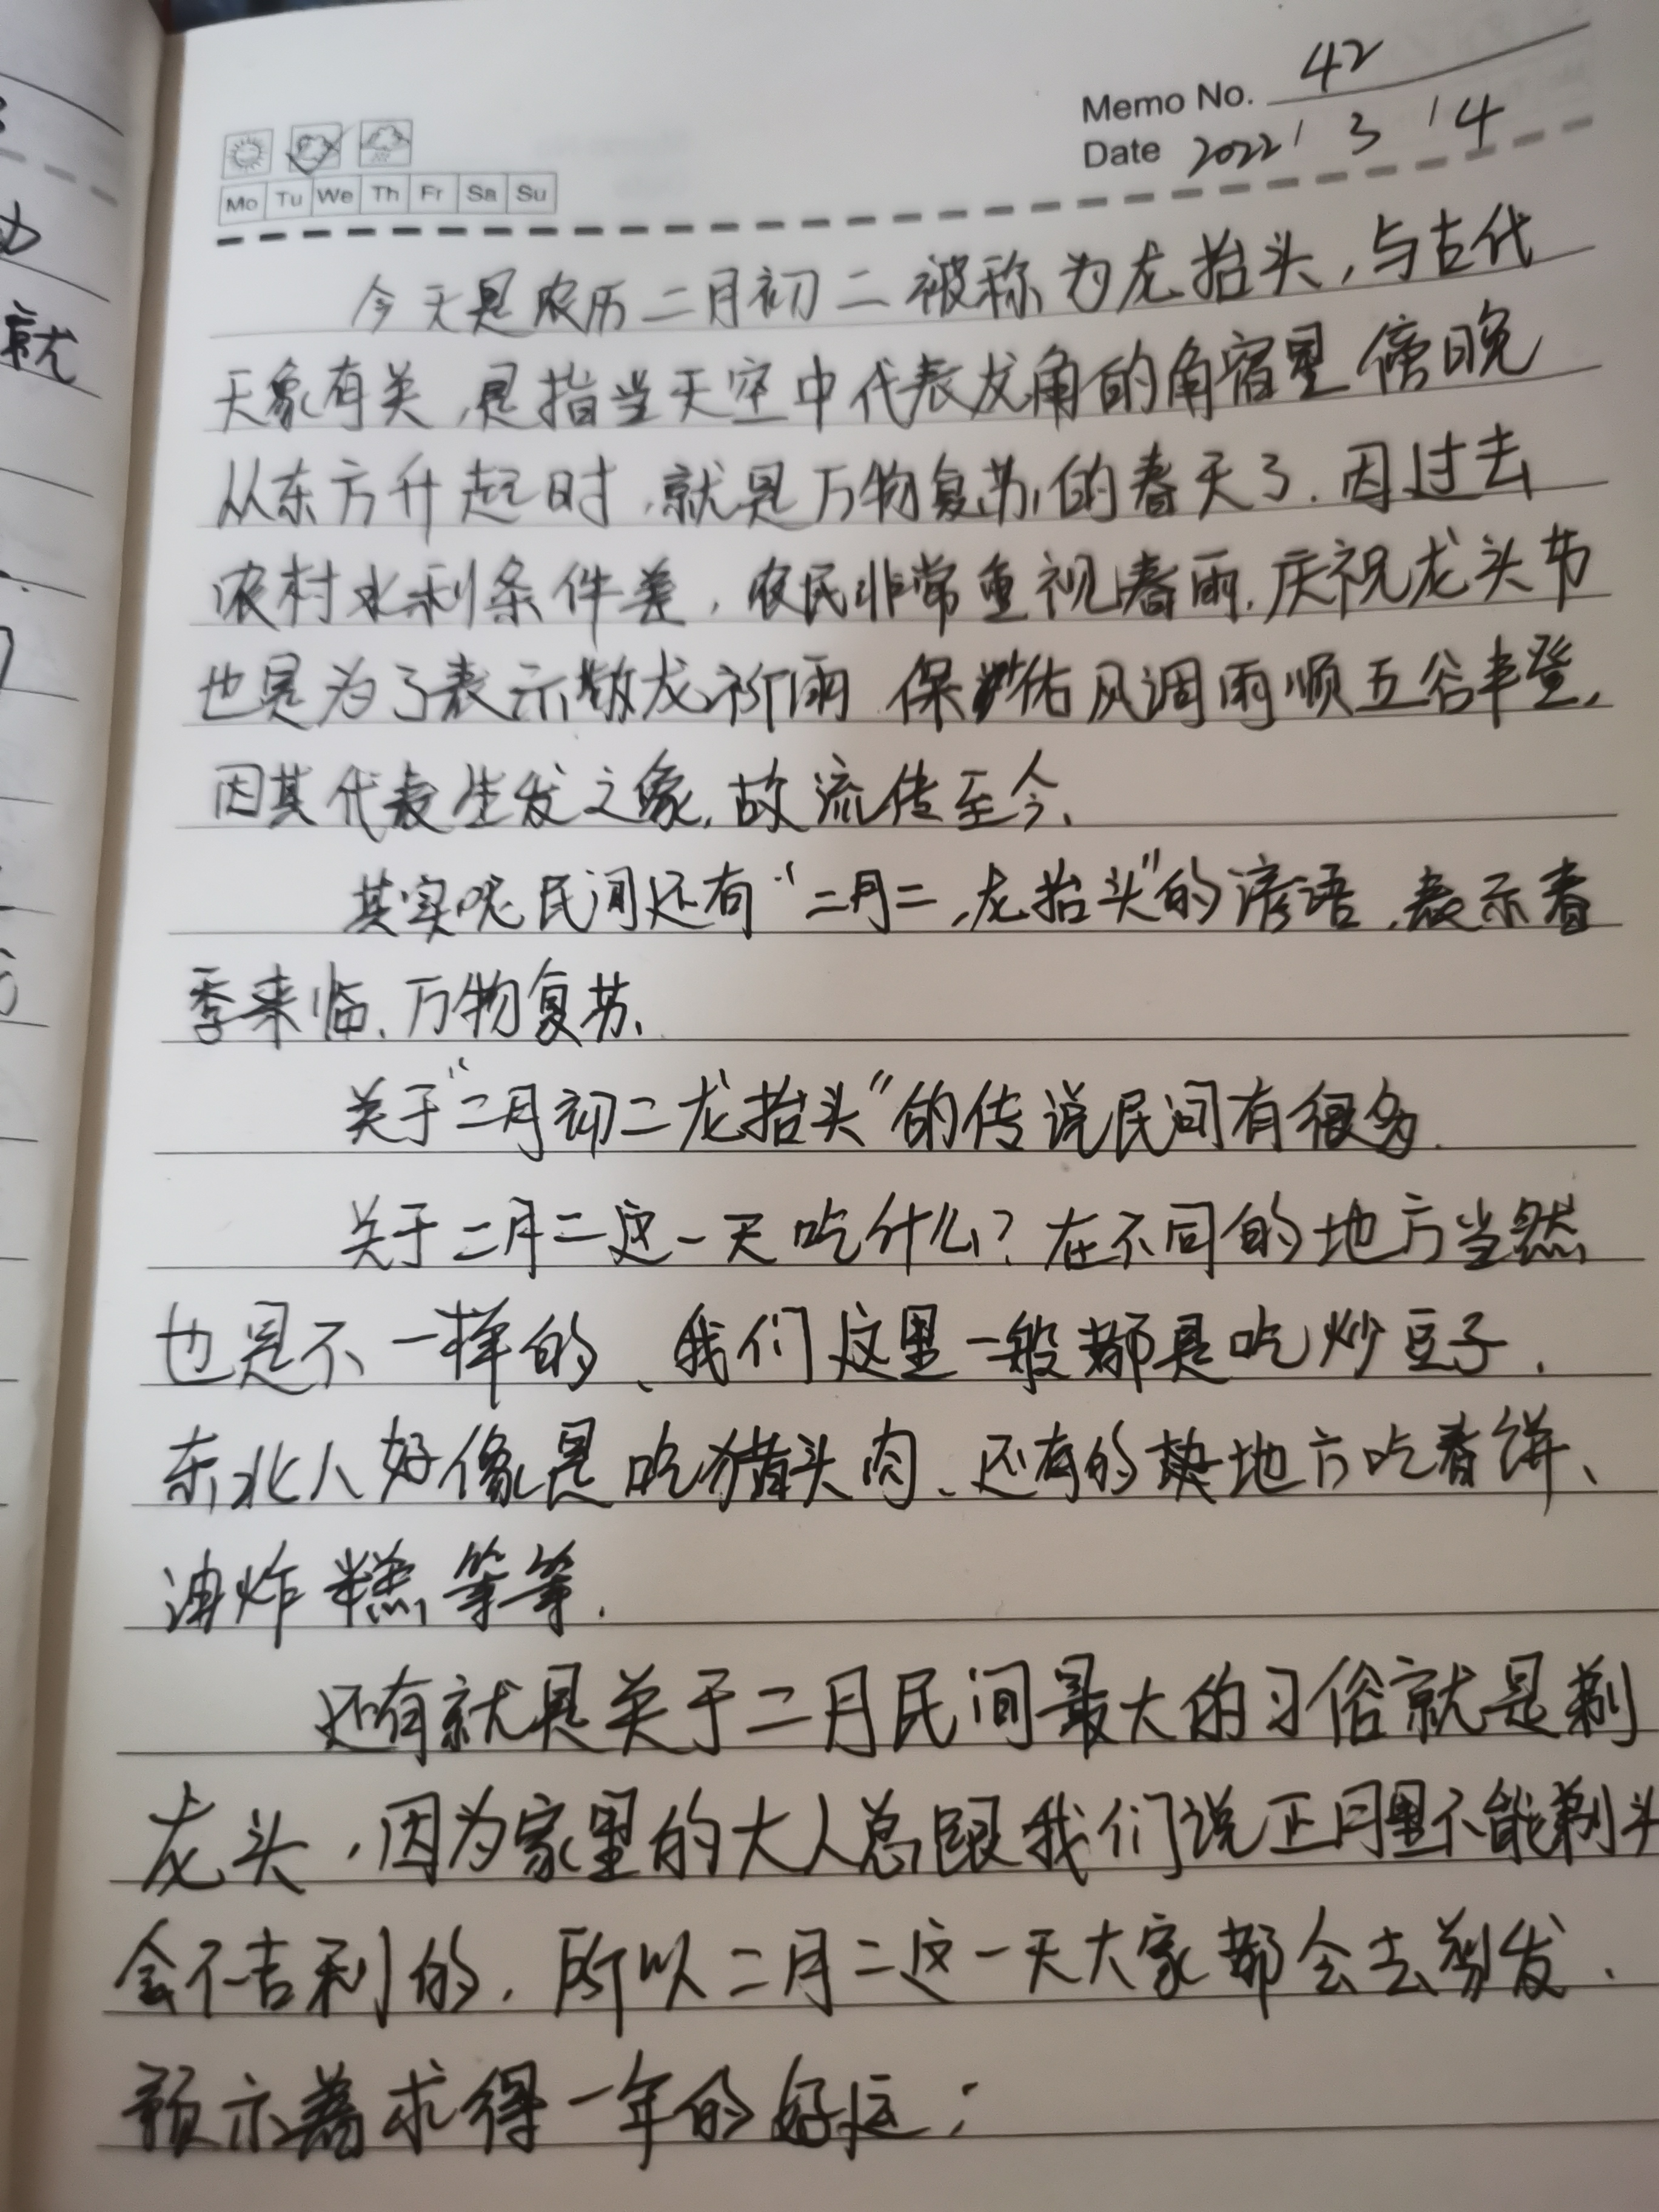 Memo No. 42
Date 2022 / 3 / 4
Mo Tu We Th Fr Sa Su
今天是农历二月初二被称为龙抬头,与古代
天象有关,是指当天空中代表龙角的角宿星傍晚
从东方升起时,就是万物复苏的春天了.因过去
农村水利条件差,农民非常重视春雨.庆祝龙头节
也是为了表示敬龙祈雨 保佑风调雨顺五谷丰登,
因其代表生发之象,故流传至今、
其实呢民间还有“二月二,龙抬头”的谚语,表示春
季来临、万物复苏、
关于“二月初二龙抬头”的传说民间有很多.
关于二月二这一天吃什么?在不同的地方当然
也是不一样的、我们这里一般都是吃炒豆子.
东北人好像是吃猪头肉、还有的 地方吃春饼、
油炸糕等等.
还有就是关于二月民间最大的习俗就是剃
龙头,因为家里的大人总跟我们说正月里不能剃头
会不吉利的,所以二月二这一天大家都会去剪发.
预示着求得一年的好运;
就